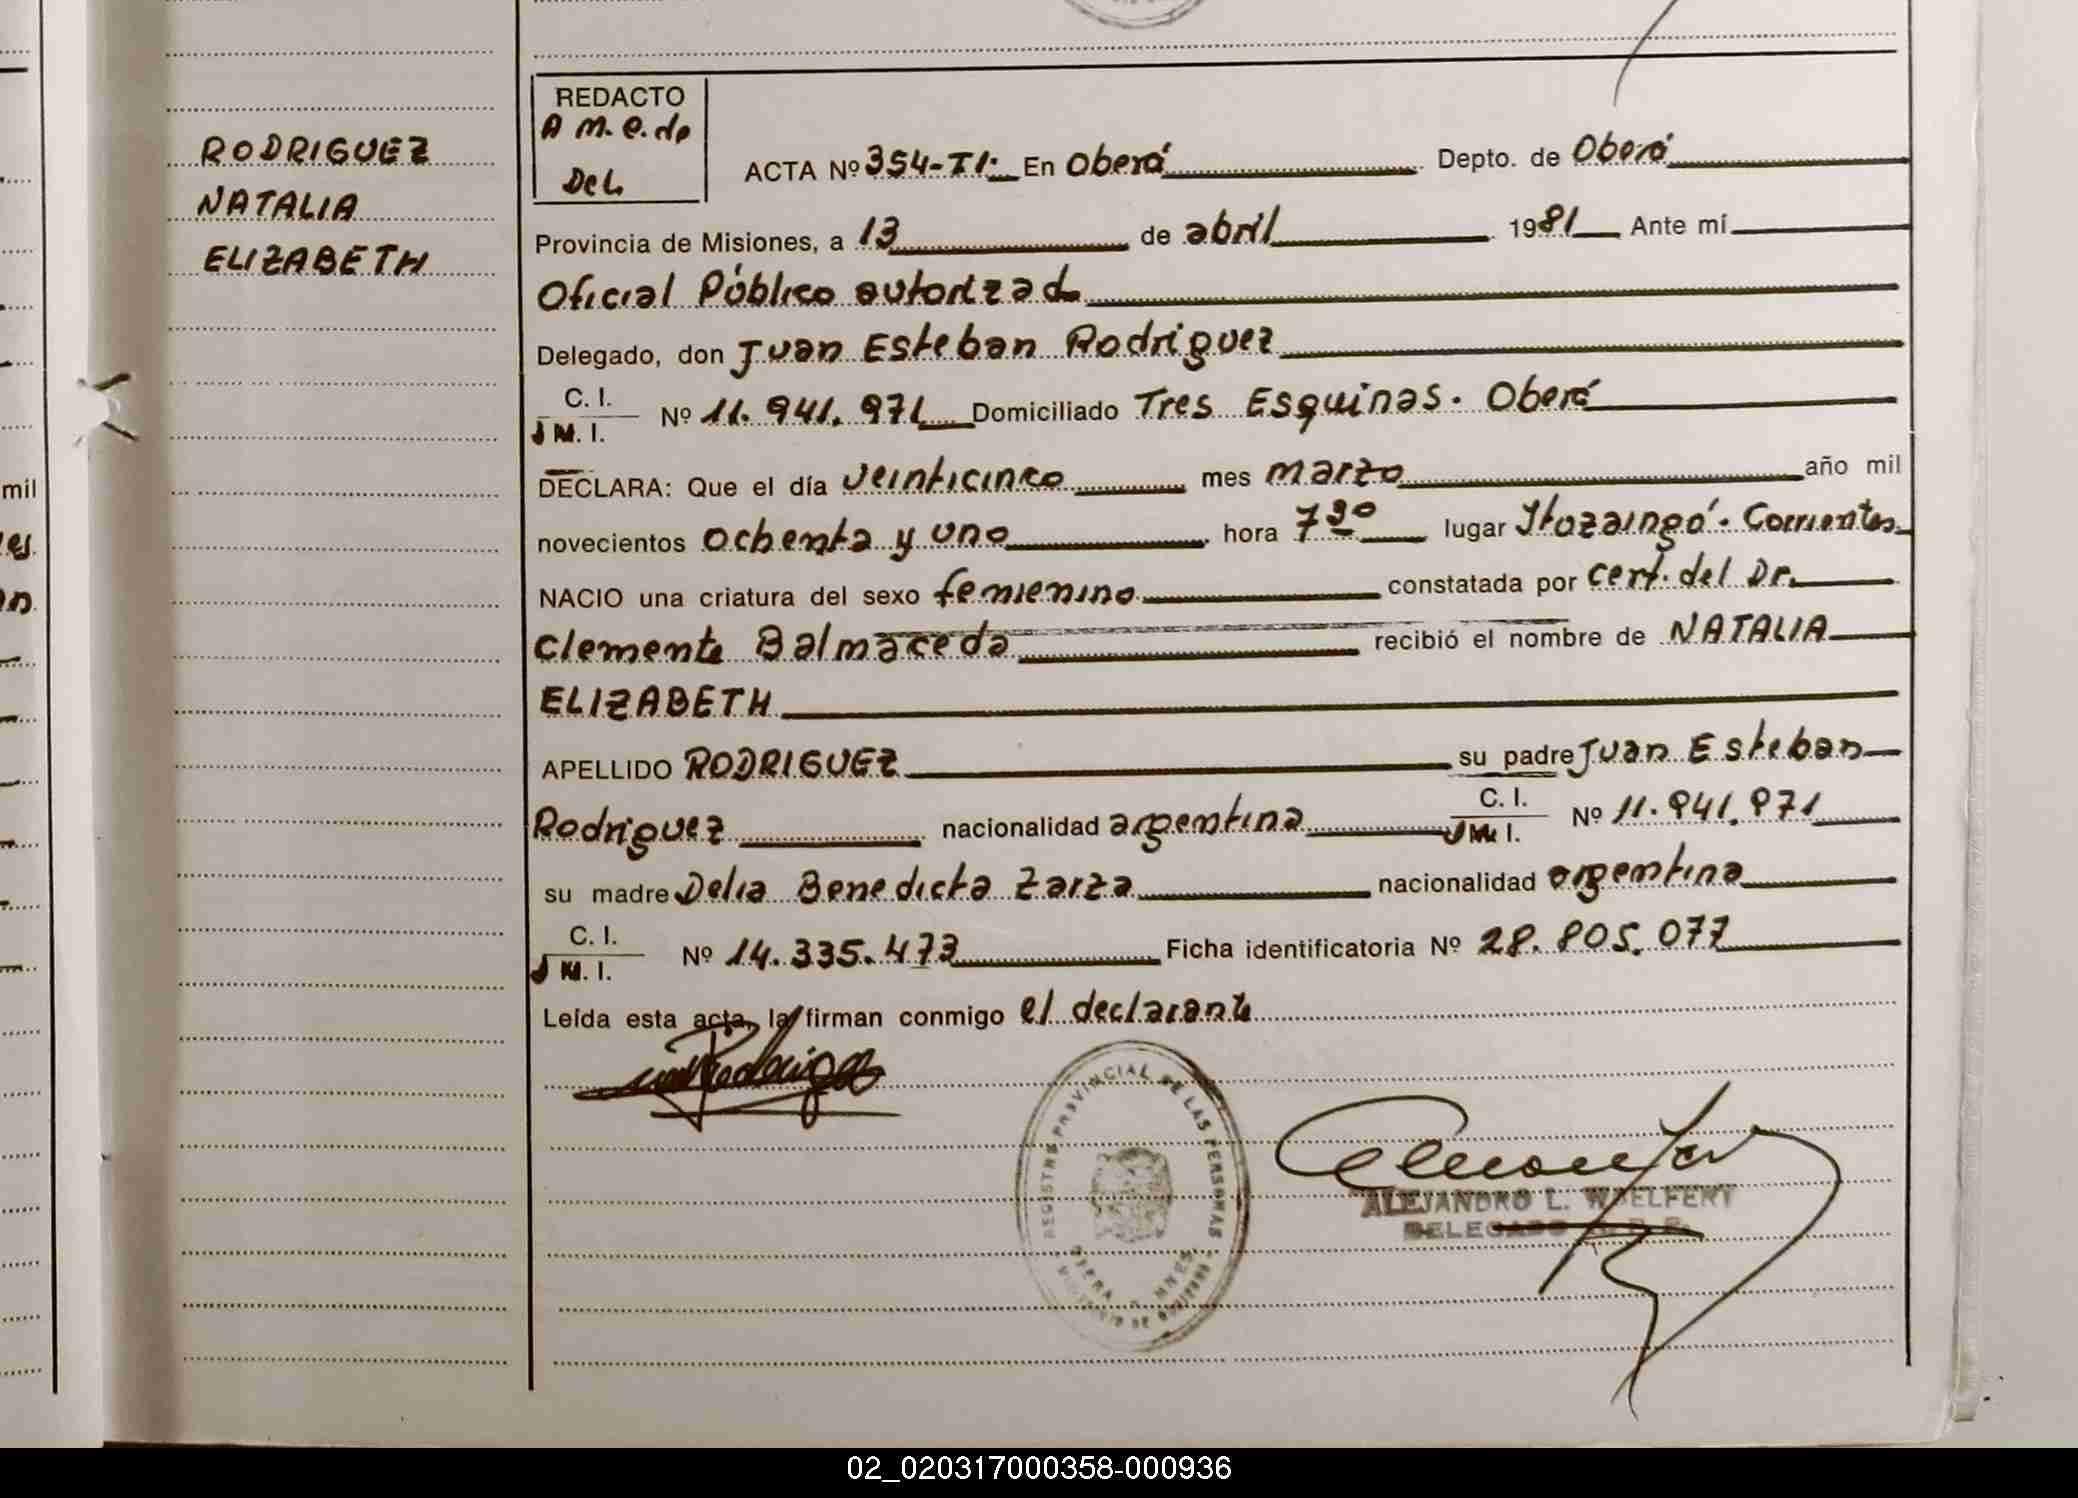 RODRIGUEZ
NATALIA
ELIZABETH
REDACTO
A m.e.de
Del
ACTA Nº 354-TI: En Oberá Depto. de Oberá
Provincia de Misiones, a 13 de abril 1981 Ante mí
Oficial Público autorizado
Delegado, don Juan Esteban Rodriguez
C. I.
M. I.
Nº 11.941.971 Domiciliado Tres Esquinas. Oberá
DECLARA: Que el día veinticinco mes marzo año mil
novecientos ochenta y uno hora 7 30 lugar Itozaingó. Corrientes
NACIO una criatura del sexo femienino constatada por cert. del Dr.
Clemente Balmaceda recibió el nombre de NATALIA
ELIZABETH
APELLIDO RODRIGUEZ su padre Juan Esteban
Rodriguez nacionalidad argentina C. I. M. I. Nº 11.941.971
su madre Delia Benedicta Zarza nacionalidad argentina
C. I.
M. I.
Nº 14.335.473 Ficha identificatoria Nº 28.805.077
Leída esta acta, la firman conmigo el declarante
REGISTRO PROVINCIAL DE LAS PERSONAS
ALEJANDRO L. WOELFERT
DELEGADO
mil
02_020317000358-000936